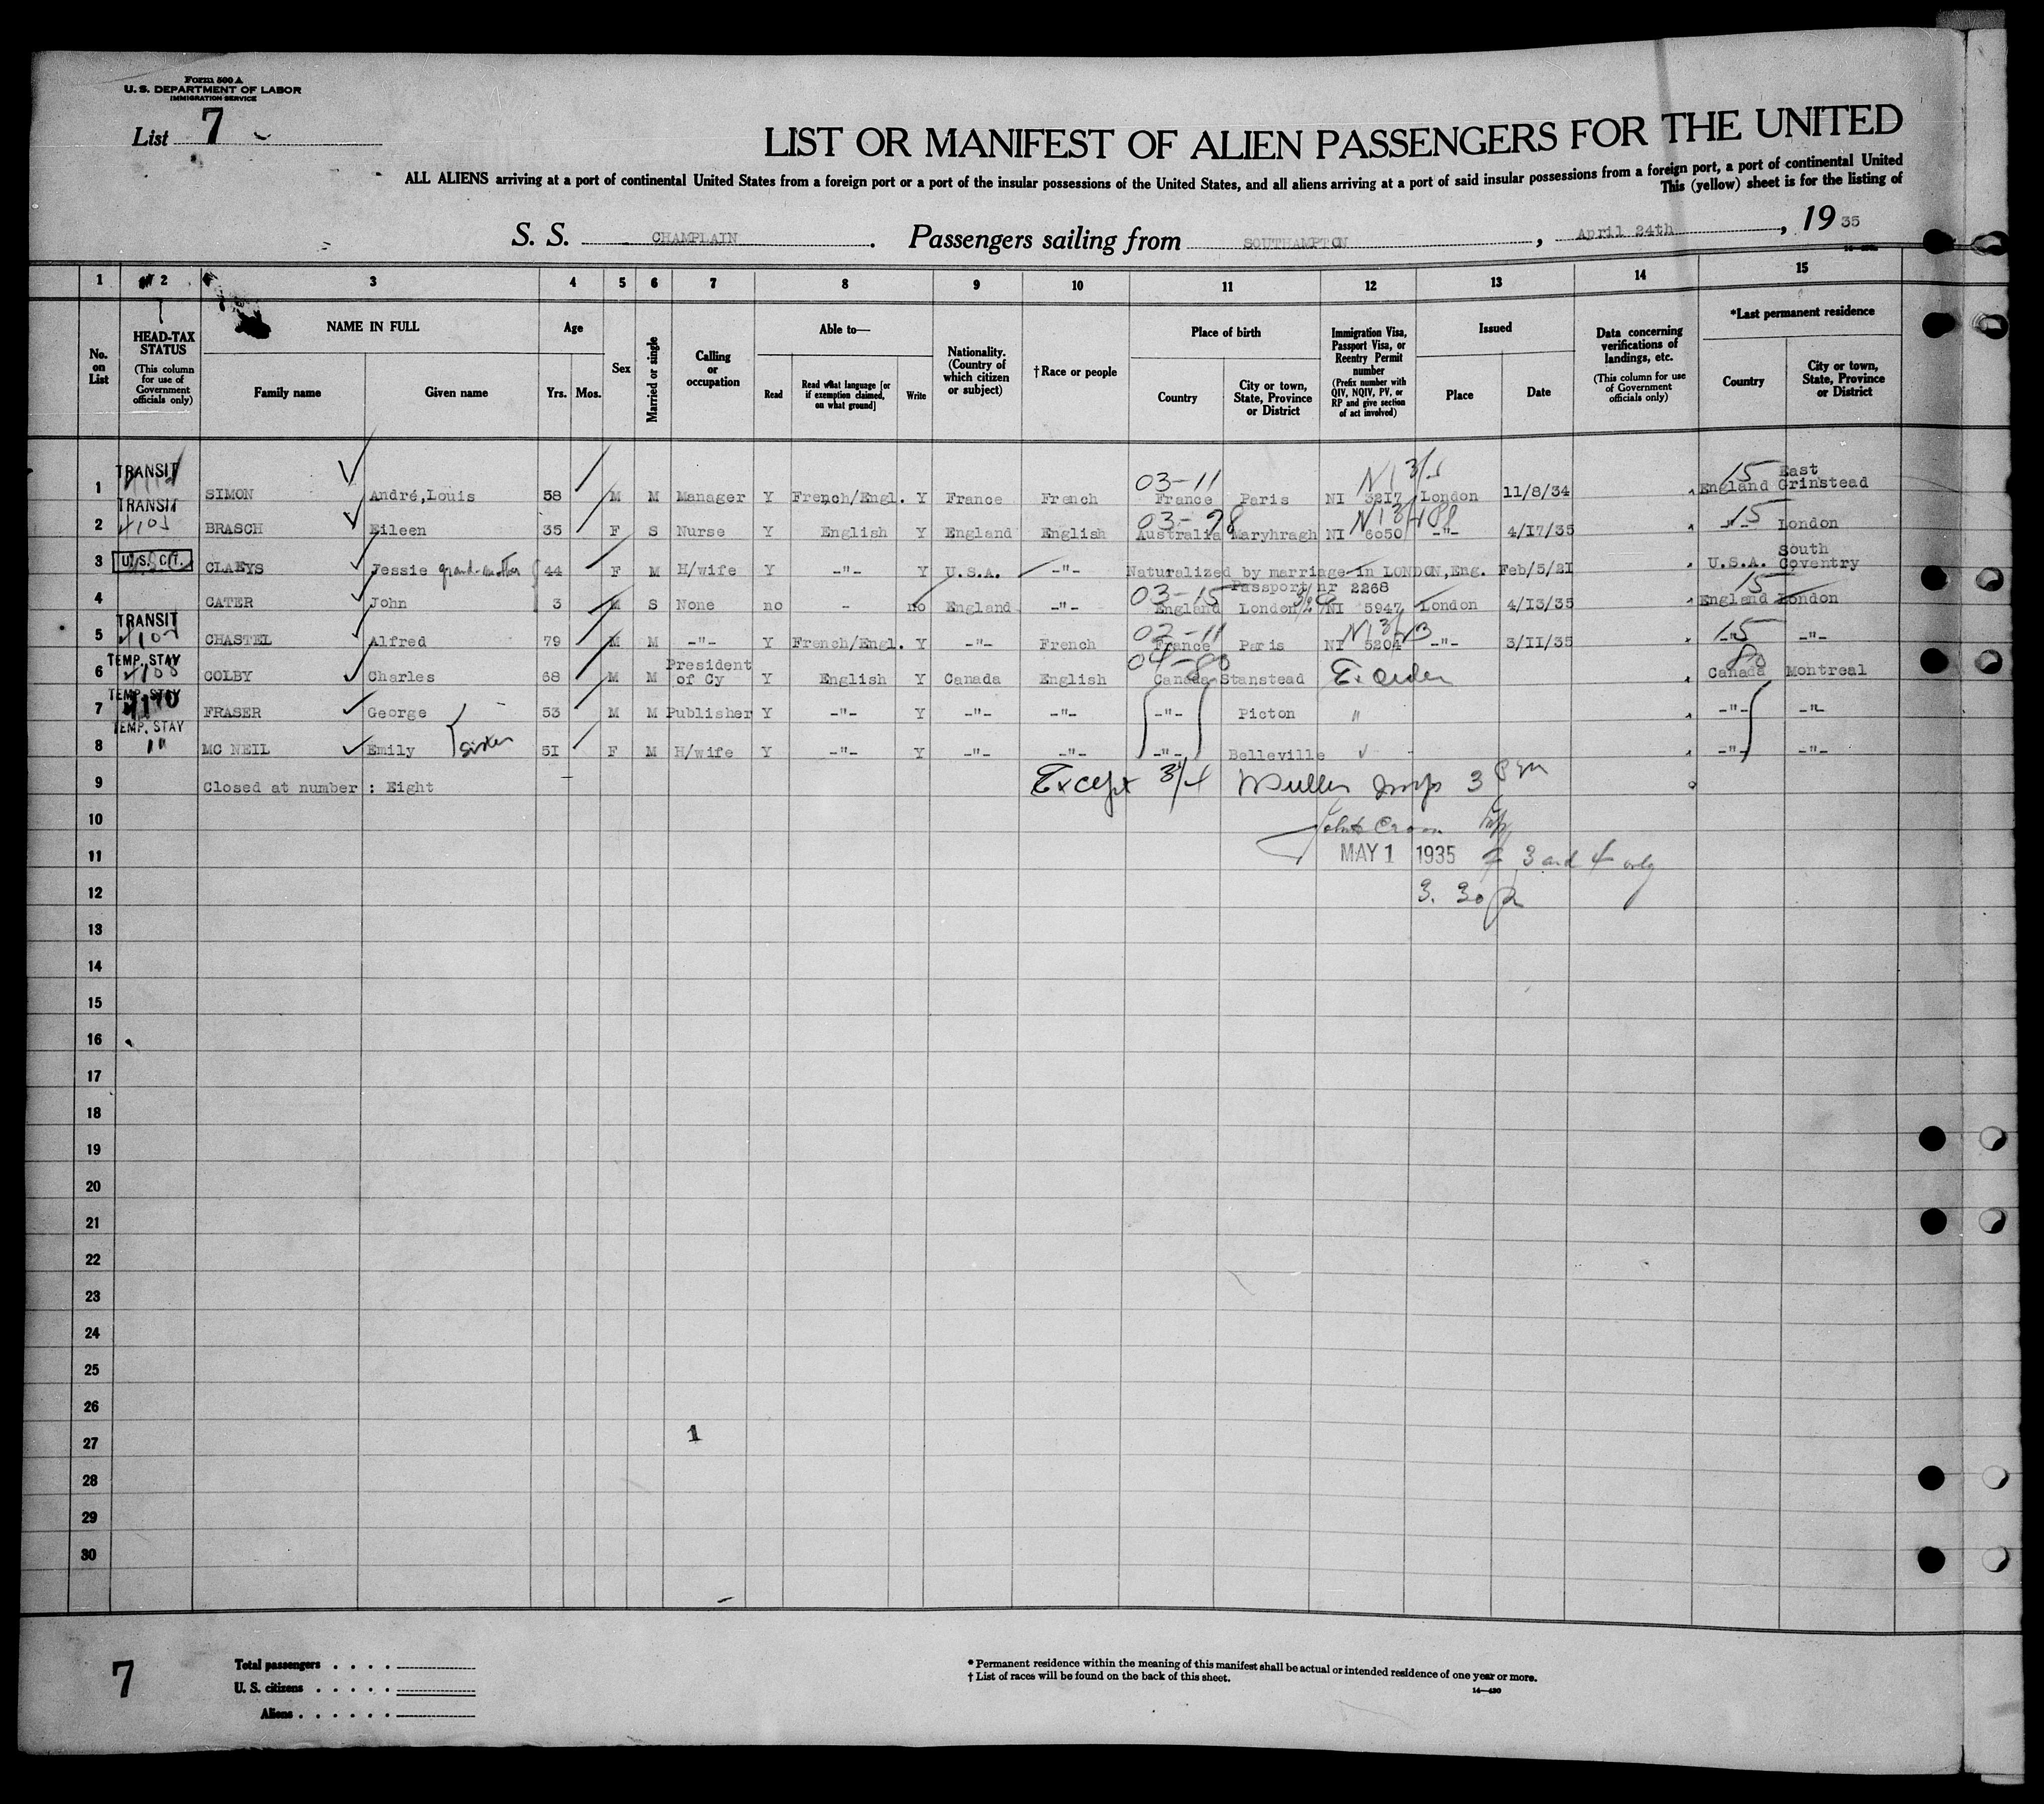 Form 500 A
U. S. DEPARTMENT OF LABOR
IMMIGRATION SERVICE
List 7
LIST OR MANIFEST OF ALIEN PASSENGERS FOR THE UNITED
ALL ALIENS arriving at a port of continental United States from a foreign port or a port of the insular possessions of the United States, and all aliens arriving at a port of said insular possessions from a foreign port, a port of continental United
This (yellow) sheet is for the listing of
S. S. CHAMPLAIN. Passengers sailing from SOUTHAMPTON, April 24th, 1935
1 2 3 4 5 6 7 8 9 10 11 12 13 14 15
No. on List
HEAD-TAX STATUS
(This column for use of Government officials only)
NAME IN FULL
Family name Given name
Age
Yrs. Mos.
Sex
Married or single
Calling or occupation
Able to—
Read
Read what language [or if exemption claimed, on what ground]
Write
Nationality. (Country of which citizen or subject)
†Race or people
Place of birth
Country
City or town, State, Province or District
Immigration Visa, Passport Visa, or Reentry Permit number
(Prefix number with QIV, NQIV, PV, or RP and give section of act involved)
Issued
Place Date
Data concerning verifications of landings, etc.
(This column for use of Government officials only)
*Last permanent residence
Country
City or town, State, Province or District
TRANSIT 03-11 15
1 SIMON André,Louis 58 M M Manager Y French/Engl. Y France French France Paris NI 3217 London 11/8/34 England East Grinstead
TRANSIT 03-78 15
2 BRASCH Eileen 35 F S Nurse Y English Y England English Australia Maryhragh NI 6050 -"- 4/17/35 -"- London
3 U.S. CIT. CLAEYS Jessie grand-mother 44 F M H/wife Y -"- Y U.S.A. -"- Naturalized by marriage in LONDON,Eng. Feb/5/2I U.S.A. South Coventry
Passport nr 2268
03-15 15
4 CATER John 3 M S None no - no England -"- England London NI 5947 London 4/13/35 England London
TRANSIT 03-11 15
5 CHASTEL Alfred 79 M M -"- Y French/Engl. Y -"- French France Paris NI 5204 -"- 3/II/35 -"- -"-
TEMP. STAY 04-80 80
6 COLBY Charles 68 M M President of Cy Y English Y Canada English Canada Stanstead Ex. Order Canada Montreal
TEMP. STAY
7 FRASER George 53 M M Publisher Y -"- Y -"- -"- -"- Picton " -"- -"-
TEMP. STAY sister
8 MC NEIL Emily 5I F M H/wife Y -"- Y -"- -"- -"- Belleville -"- -"-
9 Closed at number : Eight Except 3/4 Muller Insp 3 pm
10
11 MAY 1 1935 3 and 4 only
12 3.30 p
13
14
15
16
17
18
19
20
21
22
23
24
25
26
27 1
28
29
30
7
Total passengers
U. S. citizens
Aliens
* Permanent residence within the meaning of this manifest shall be actual or intended residence of one year or more.
† List of races will be found on the back of this sheet.
14—430